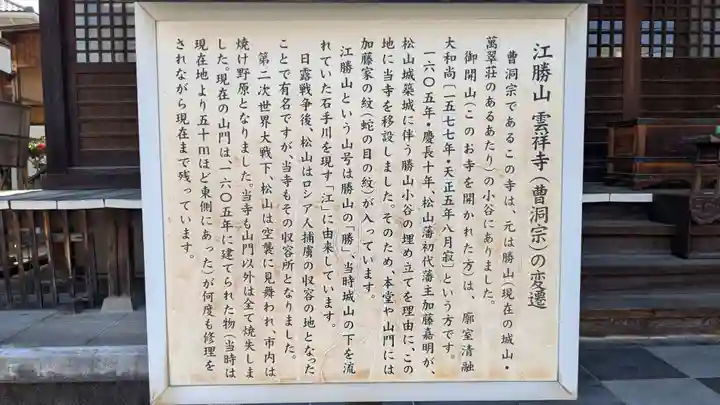 江勝山 雲祥寺(曹洞宗)の変遷
曹洞宗であるこの寺は、元は勝山(現在の城山・
萬翠荘のあるあたり)の小谷にありました。
御開山(このお寺を開かれた方)は、廓室清融
大和尚[一五七七年・天正五年八月寂]という方です。
一六〇五年・慶長十年、松山藩初代藩主加藤嘉明が、
松山城築城に伴う勝山小谷の埋め立てを理由に、この
地に当寺を移設しました。そのため、本堂や山門には
加藤家の紋(蛇の目の紋)が入っています。
江勝山という山号は勝山の「勝」、当時城山の下を流
れていた石手川を現す「江」に由来しています。
日露戦争後、松山はロシア人捕虜の収容の地となった
ことで有名ですが、当寺もその収容所となりました。
第二次世界大戦下、松山は空襲に見舞われ、市内は
焼け野原となりました。当寺も山門以外は全て焼失しま
した。現在の山門は、一六〇五年に建てられた物(当時は
現在地より五十mほど東側にあった)が何度も修理を
されながら現在まで残っています。